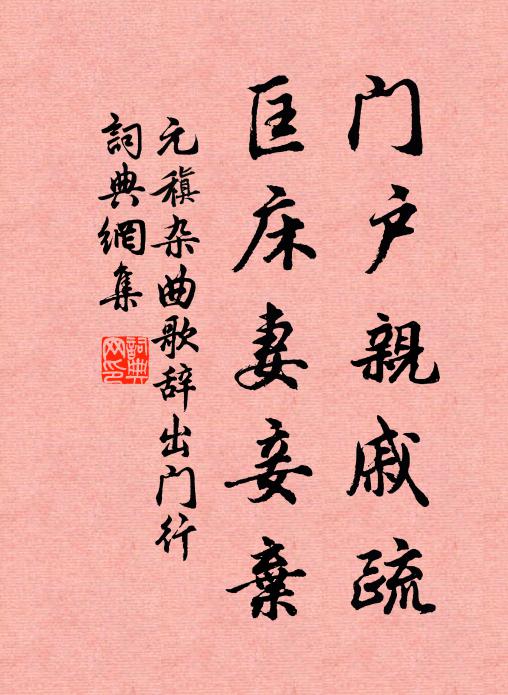 门户親戚疏
匡床妻妾棄
元稹杂曲歌辞出门行
詞典網集
詞典网印